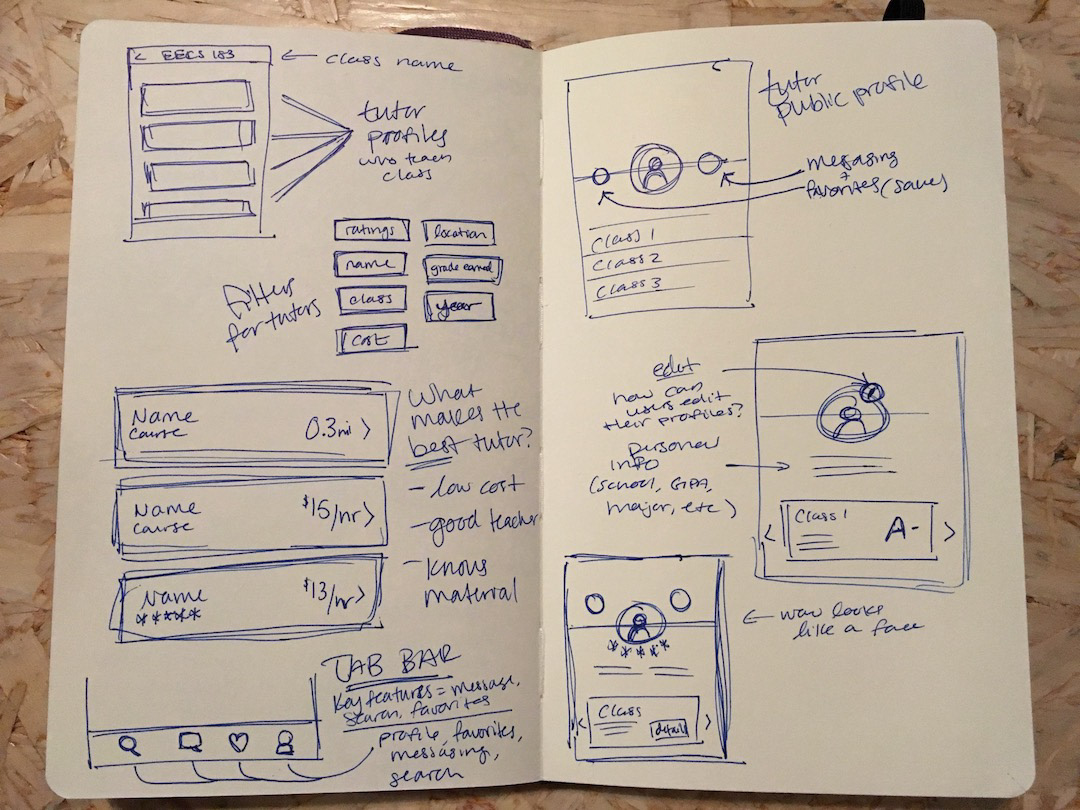 < EECS 183
← class name
tutor
profiles
who teach
class
Filters
for tutors
ratings
location
name
grade earned
class
year
cost
Name
course
0.3mi >
Name
course
$15/hr >
Name
*****
$13/hr >
What
makes the
best tutor?
- low cost
- good teacher
- knows
material
TAB BAR
Key features = message,
search, favorites
profile, favorites,
messasing,
search
tutor
public profile
messasing
+
favorites (save)
Class 1
Class 2
Class 3
edit
how can
users edit
their profiles?
personal
info
(school, GPA,
major, etc)
Class 1
A-
< >
← wow looks
like a face
*****
Class
details
< >